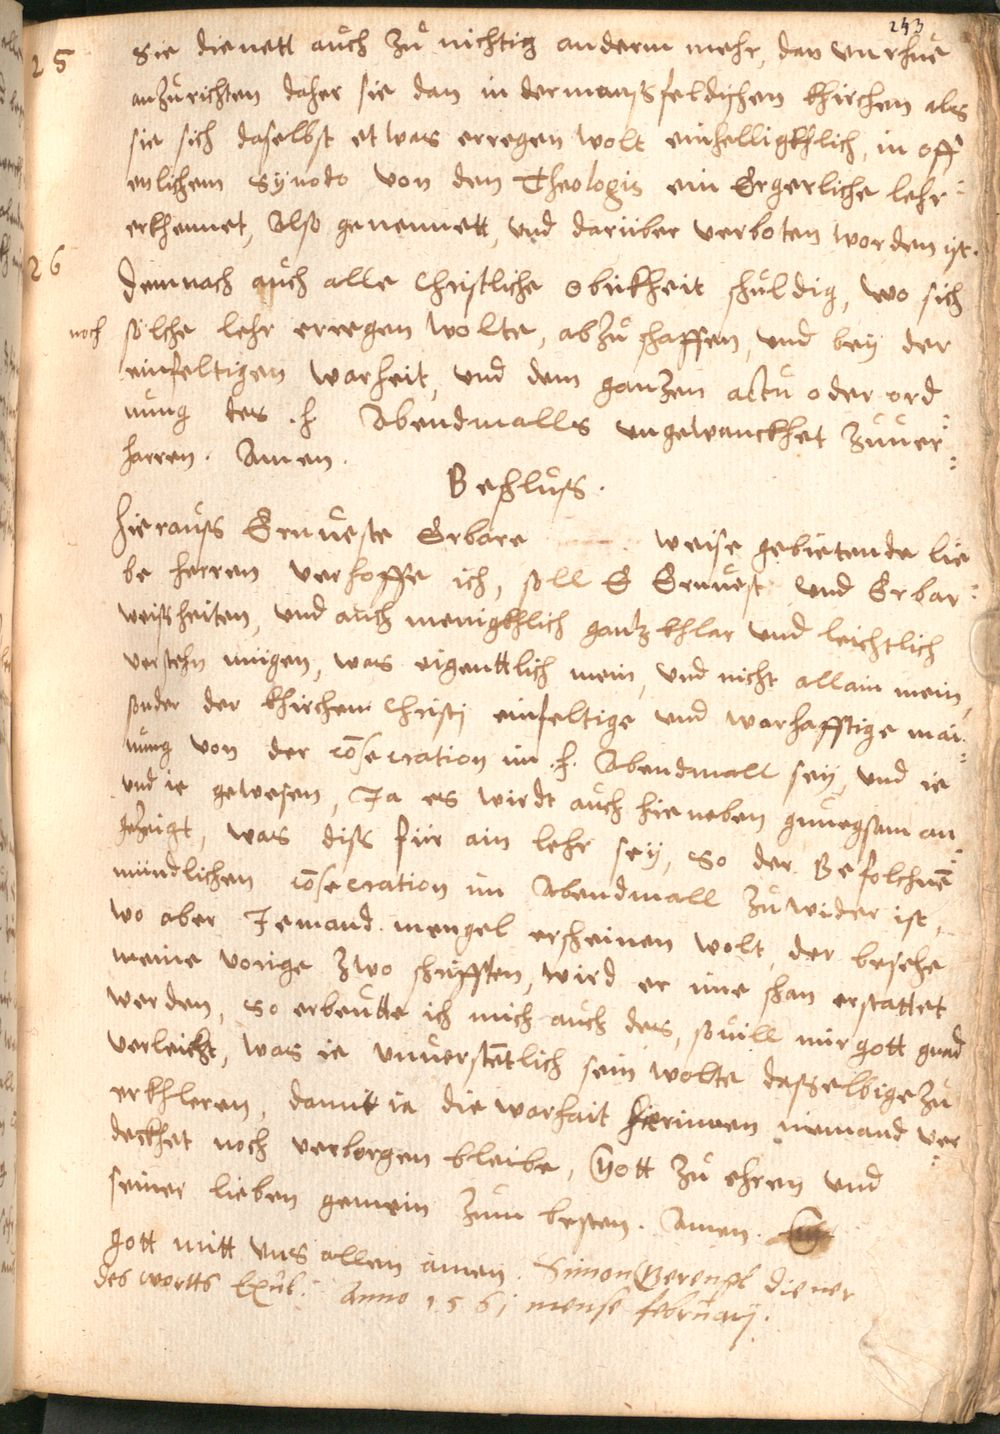 243
25 Sie dienett auch zu nichtig anderm mehr, dan vnrhue
anzurichten daher sie dan in der mansfeldischen khirchen als
sie sich daselbst etwas erregen wolt einhelligkhlich, in off
enlichem Synodo von den Theologis ein Ergerliche lehr
erkhennet, Also genennett, vnd darüber verboten worden ist.
26 Demnach auch alle Christliche Obrikheit schuldig, wo sich
noch solche lehr erregen wolte, abzuschaffen, vnd bey der
einfeltigen warheit, vnd dem ganzen actu oder ord
nung des .h. Abendmalls vngewanckhet zuuer=
harren. Amen.
Beschluss.
Hierauss Ernueste Erbare weise gebietende lie
be herren verhoffe ich, soll E Ernuest vnd Erbar=
weissheiten, vnd auch menigkhlich gantz khlar vnd leichtlich
verstehn mügen, was eigenttlich mein, vnd nicht allain mein,
sonder der khirchen Christi einfeltige vnd warhafftige mai=
nung von der cōsecration im .h. Abendmall sey, vnd ie
vnd ie gewesen, Ja es wirdt auch hieneben gnuegsam an=
gezeigt, was diss für ain lehr sey, so der Befolchnē
mündlichen cōsecration im Abendmall zuwider ist,
wo aber Jemand mengel erscheinen wolt, der besehe
meine vorige zwo schrifften, wird er ime schan erstattet
werden, so erbeutte ich mich auch des, souill mir gott gnad
verleicht, was ie vnuerstentlich sein wolte dasselbige zu
erkhleren, damit ia die warhait hierinnen niemand ver=
deckhet noch verborgen bleibe, Gott zu ehren vnd
seiner lieben gemein zum besten. Amen.
gott mitt vns allen amen. Simon diener
des wortts Exul. Anno 1561 mense februarij.